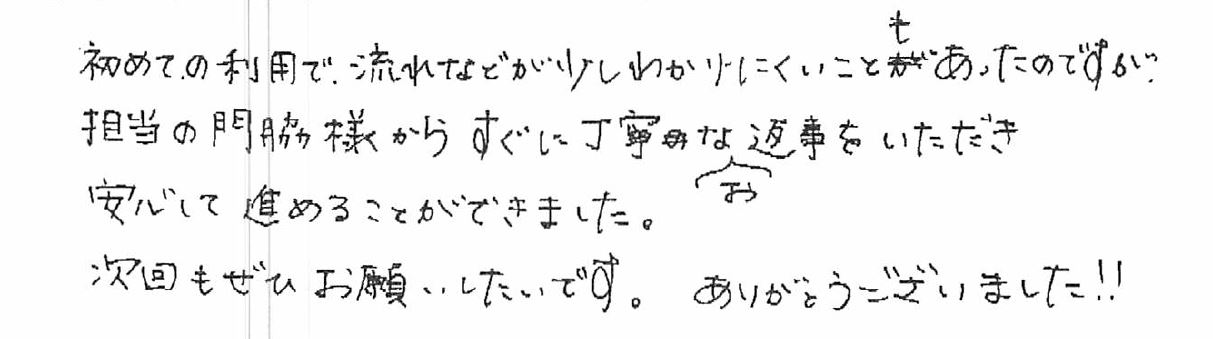 初めての利用で、流れなどが少しわかりにくいこともあったのですが、
担当の門脇様からすぐに丁寧なお返事をいただき
安心して進めることができました。
次回もぜひお願いしたいです。 ありがとうございました!!